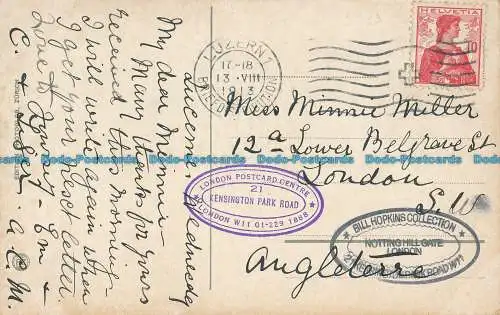 Lucerne. Wednesday
My dear Minnie -
Many thanks for yours
received this morning -
I will write again when
I get your next letter.
Love to
Em &
C. & Self.
A. E. M.
LUZERN 1
17-18
13.VIII
1913
BRIEFEXPEDITION
HELVETIA
10
Miss Minnie Miller
12a Lower Belgrave St
London
S.W
Angleterre
LONDON POSTCARD CENTRE
21
KENSINGTON PARK ROAD
LONDON W11 01-229 1888
BILL HOPKINS COLLECTION
NOTTING HILL GATE
LONDON
KENSINGTON PARK ROAD W11